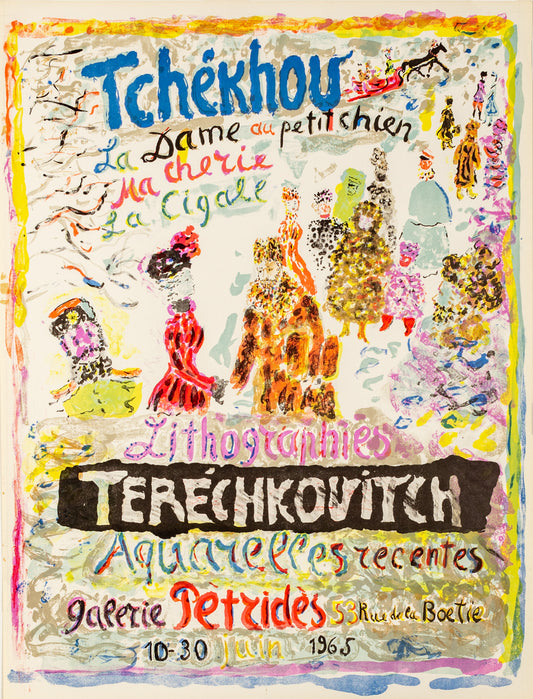 Tchékhov
La Dame au petit chien
Ma cherie
La Cigale
Lithographies
TERÉCHKOVITCH
Aquarelles recentes
galerie Pètridès 53 Rue de la Boetie
10-30 juin 1965